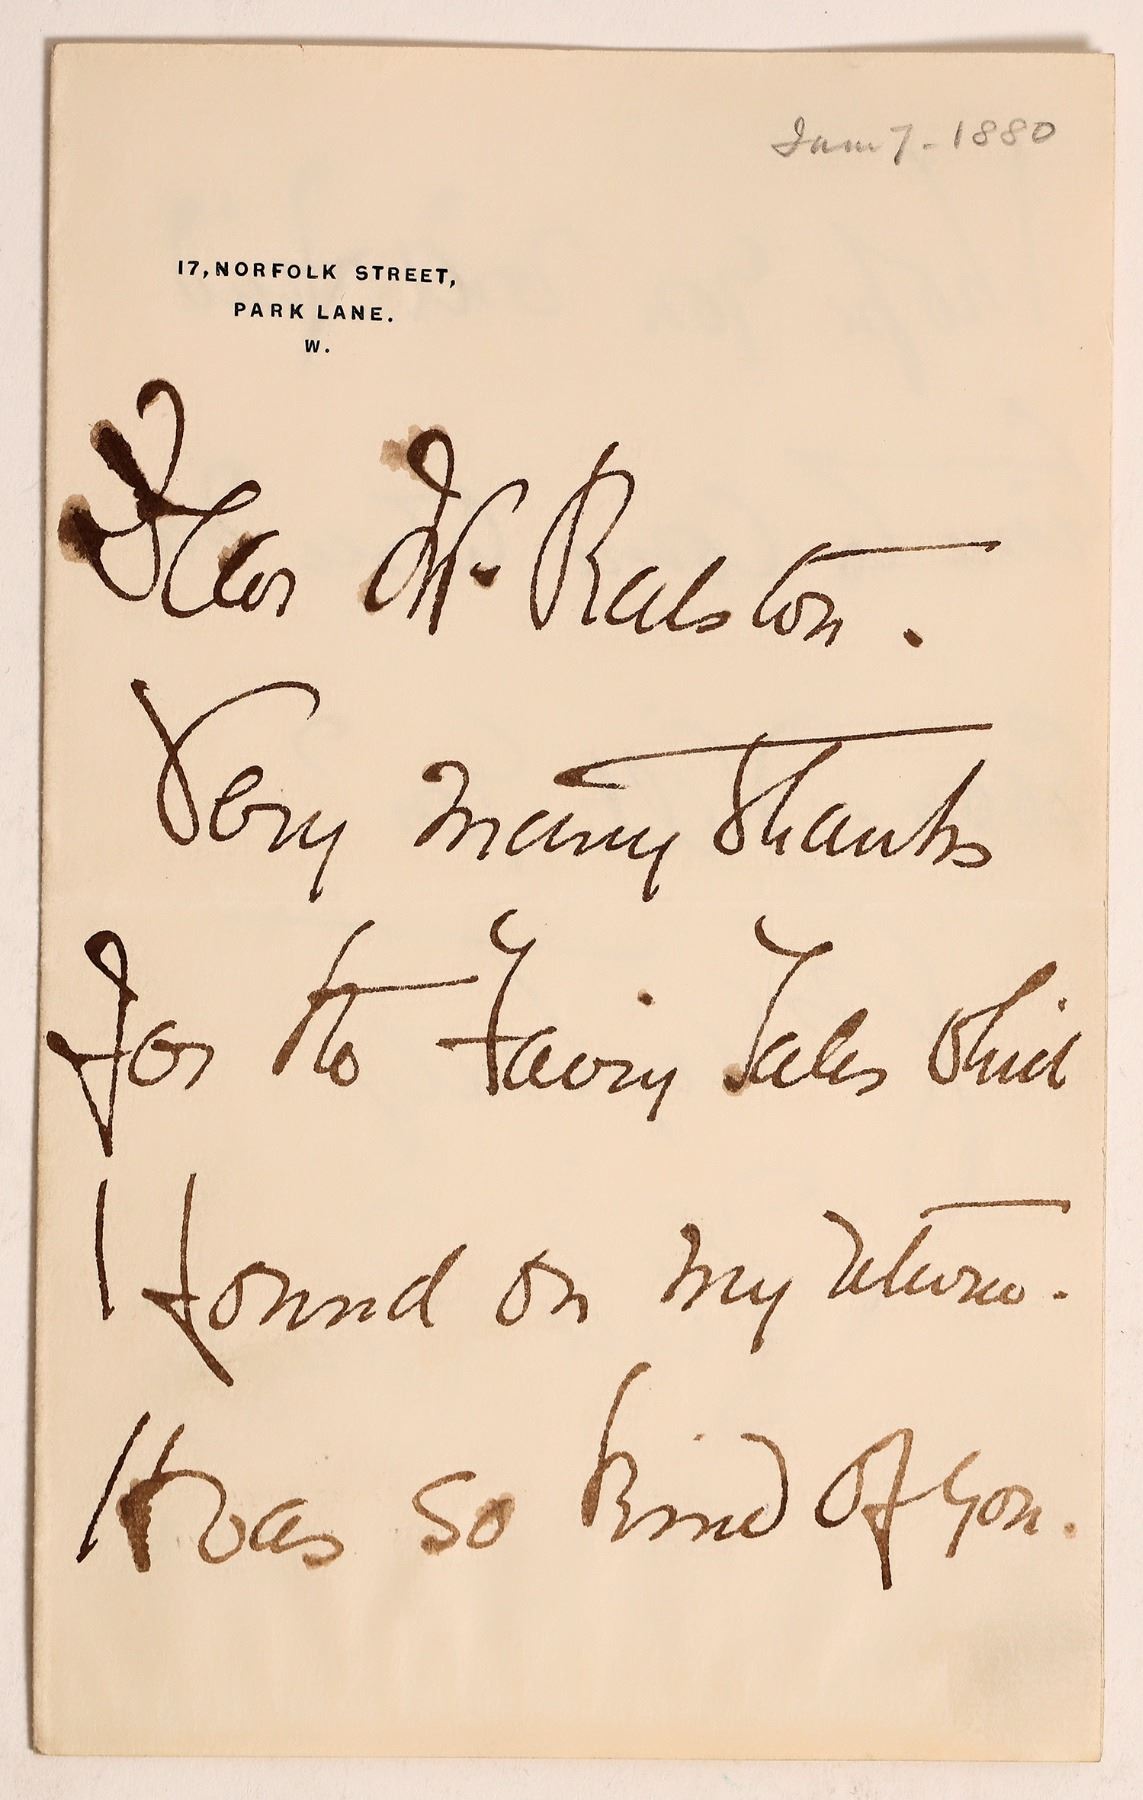 Jan 7 - 1880
17, NORFOLK STREET,
PARK LANE.
W.
Dear Mr. Ralston.
Very many thanks
for the Fairy Tales which
I found on my return.
It was so kind of you.